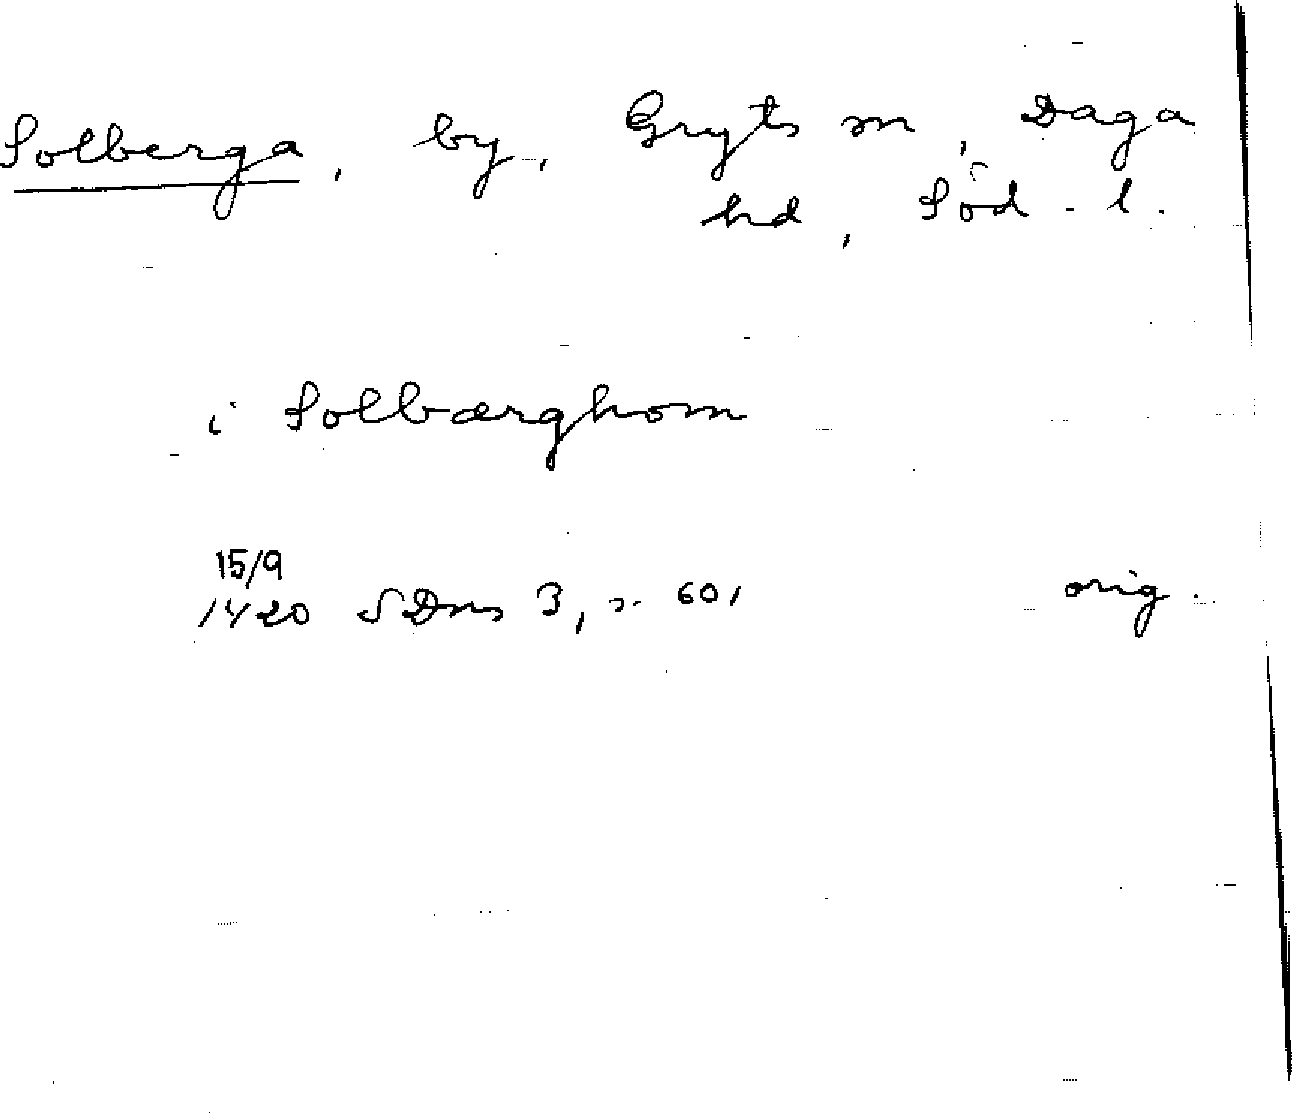 Solberga, by, Gryts sn, Daga
hd, Söd. l.
i Solbærghom
15/9
1420 SDns 3, s. 601 orig.